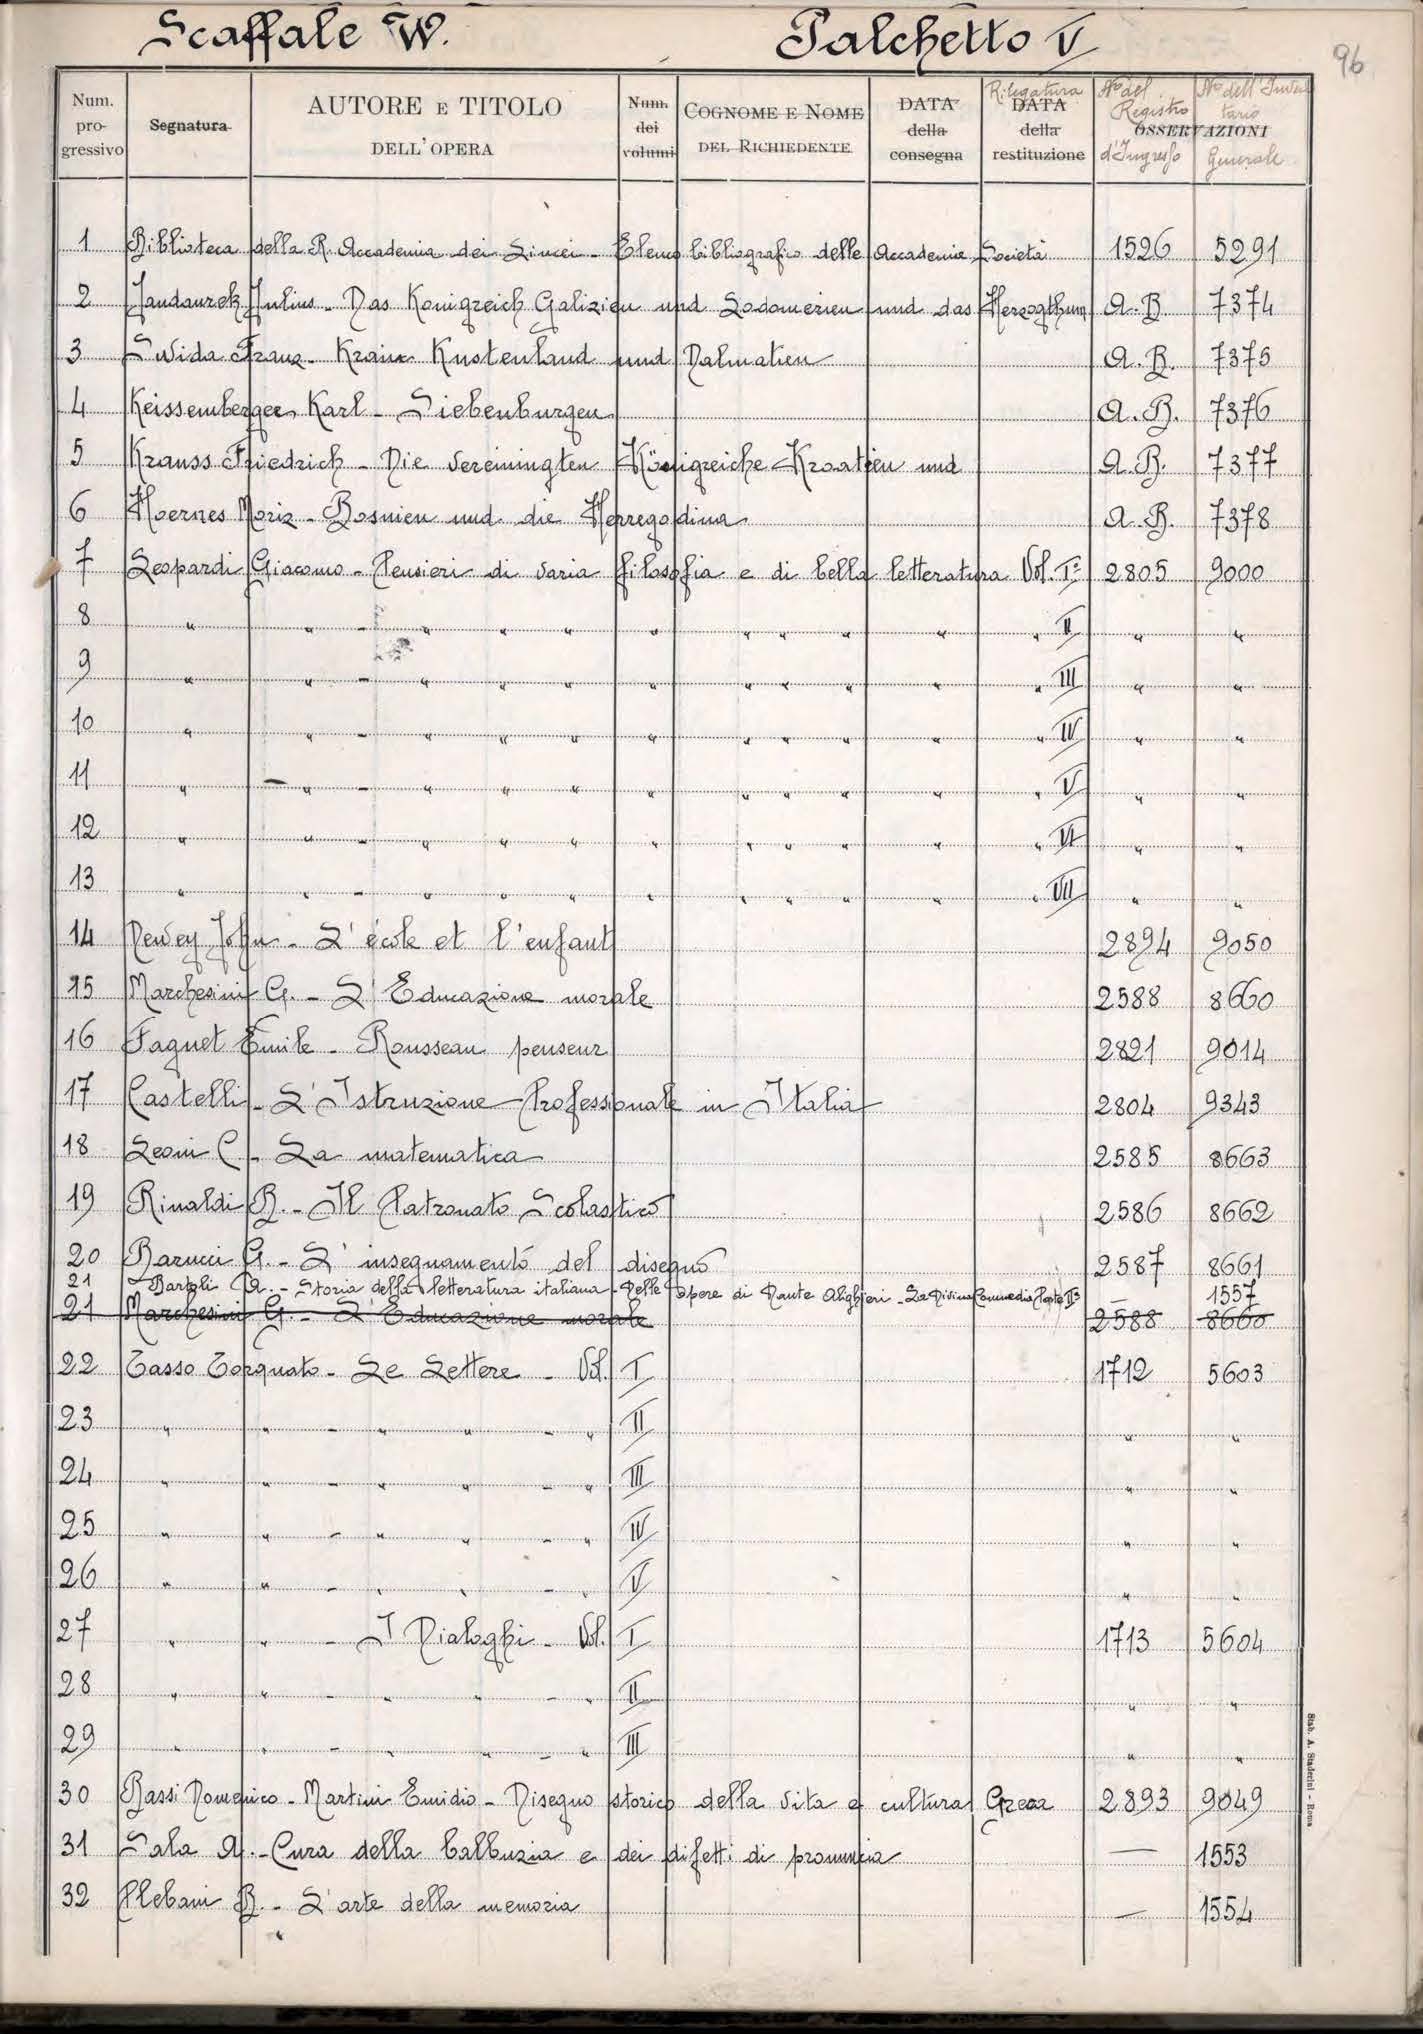 Scaffale W. Palchetto V
96
Num. progressivo Segnatura AUTORE E TITOLO DELL'OPERA Num. dei volumi COGNOME E NOME DEL RICHIEDENTE DATA della consegna Rilegatura DATA della restituzione OSSERVAZIONI No del Registro d'Ingresso No dell'Inventario Generale
1 Biblioteca della R. Accademia dei Lincei - Elenco bibliografico delle Accademie, Società 1526 5291
2 Jandaurek Julius - Das Konigreich Galizien und Lodomerien und das Herzogthum A.B. 7374
3 Swida Franz - Krain Kustenland und Dalmatien A.B. 7375
4 Keissemberger Karl - Siebenburgen A.B. 7376
5 Krauss Friedrich - Die vereiningten Königreiche Kroatien und A.B. 7377
6 Hoernes Moriz - Bosnien und die Herregodina A.B. 7378
7 Leopardi Giacomo - Pensieri di varia filosofia e di bella letteratura Vol. I° 2805 9000
8 " " - " " " " " " " " " II " "
9 " " - " " " " " " " " " III " "
10 " " - " " " " " " " " " IV " "
11 " " - " " " " " " " " " V " "
12 " " - " " " " " " " " " VI " "
13 " " - " " " " " " " " " VII " "
14 Dewey John - L'école et l'enfant 2894 9050
15 Marchesini G. - L'Educazione morale 2588 8660
16 Faguet Emile - Rousseau penseur 2821 9014
17 Castelli - L'Istruzione Professionale in Italia 2804 9343
18 Leoni C. - La matematica 2585 8663
19 Rinaldi B. - Il Patronato Scolastico 2586 8662
20 Barucci G. - L'insegnamento del disegno 2587 8661
21 Bartoli A. - Storia della letteratura italiana - Delle opere di Dante Alighieri - La Divina Commedia Parte IIa — 1557
21 Marchesini G. - L'Educazione morale 2588 8660
22 Tasso Torquato - Le Lettere - Vol. I 1712 5603
23 " " - " " - " II " "
24 " " - " " - " III " "
25 " " - " " - " IV " "
26 " " - " " - " V " "
27 " " - I Dialoghi - Vol. I 1713 5604
28 " " - " " - " II " "
29 " " - " " - " III " "
30 Bassi Domenico - Martini Emidio - Disegno storico della vita e cultura Greca 2893 9049
31 Sala A. - Cura della balbuzia e dei difetti di pronuncia — 1553
32 Plebani B. - L'arte della memoria — 1554
Stab. A. Staderini - Roma